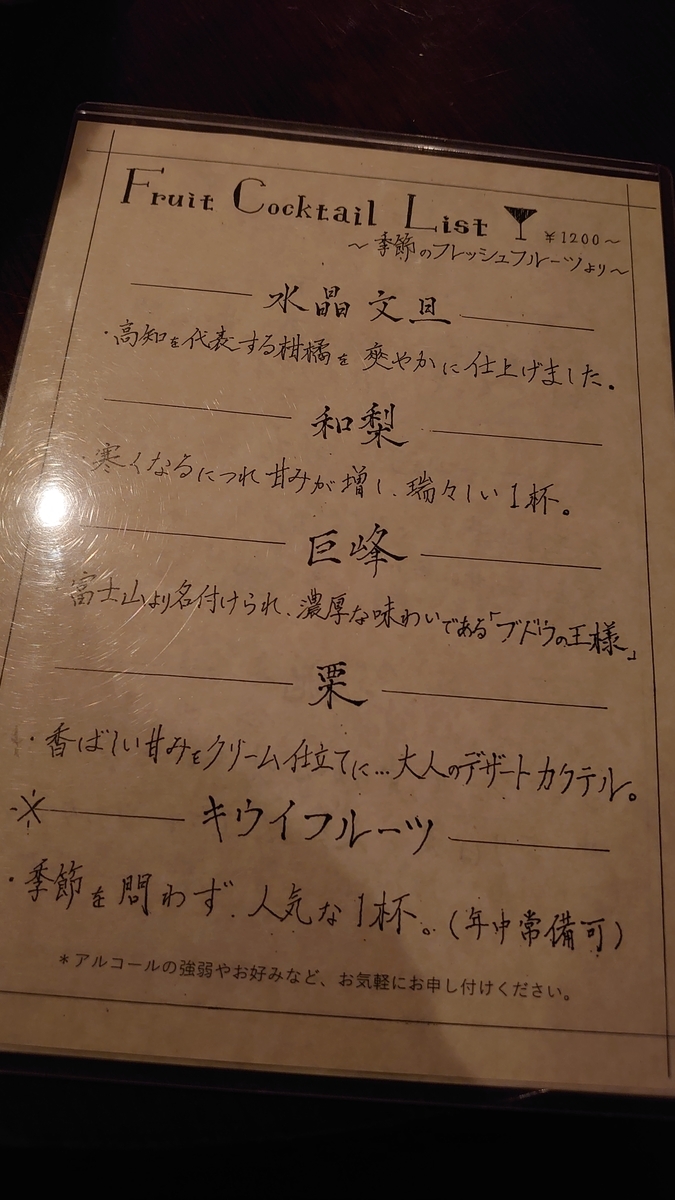 Fruit Cocktail List ¥1200～
～季節のフレッシュフルーツより～
水晶文旦
・高知を代表する柑橘を爽やかに仕上げました。
和梨
・寒くなるにつれ甘みが増し、瑞々しい1杯。
巨峰
・富士山より名付けられ、濃厚な味わいである「ブドウの王様」
栗
・香ばしい甘みをクリーム仕立てに…大人のデザートカクテル。
※キウイフルーツ
・季節を問わず、人気な1杯。(年中常備可)
*アルコールの強弱やお好みなど、お気軽にお申し付けください。